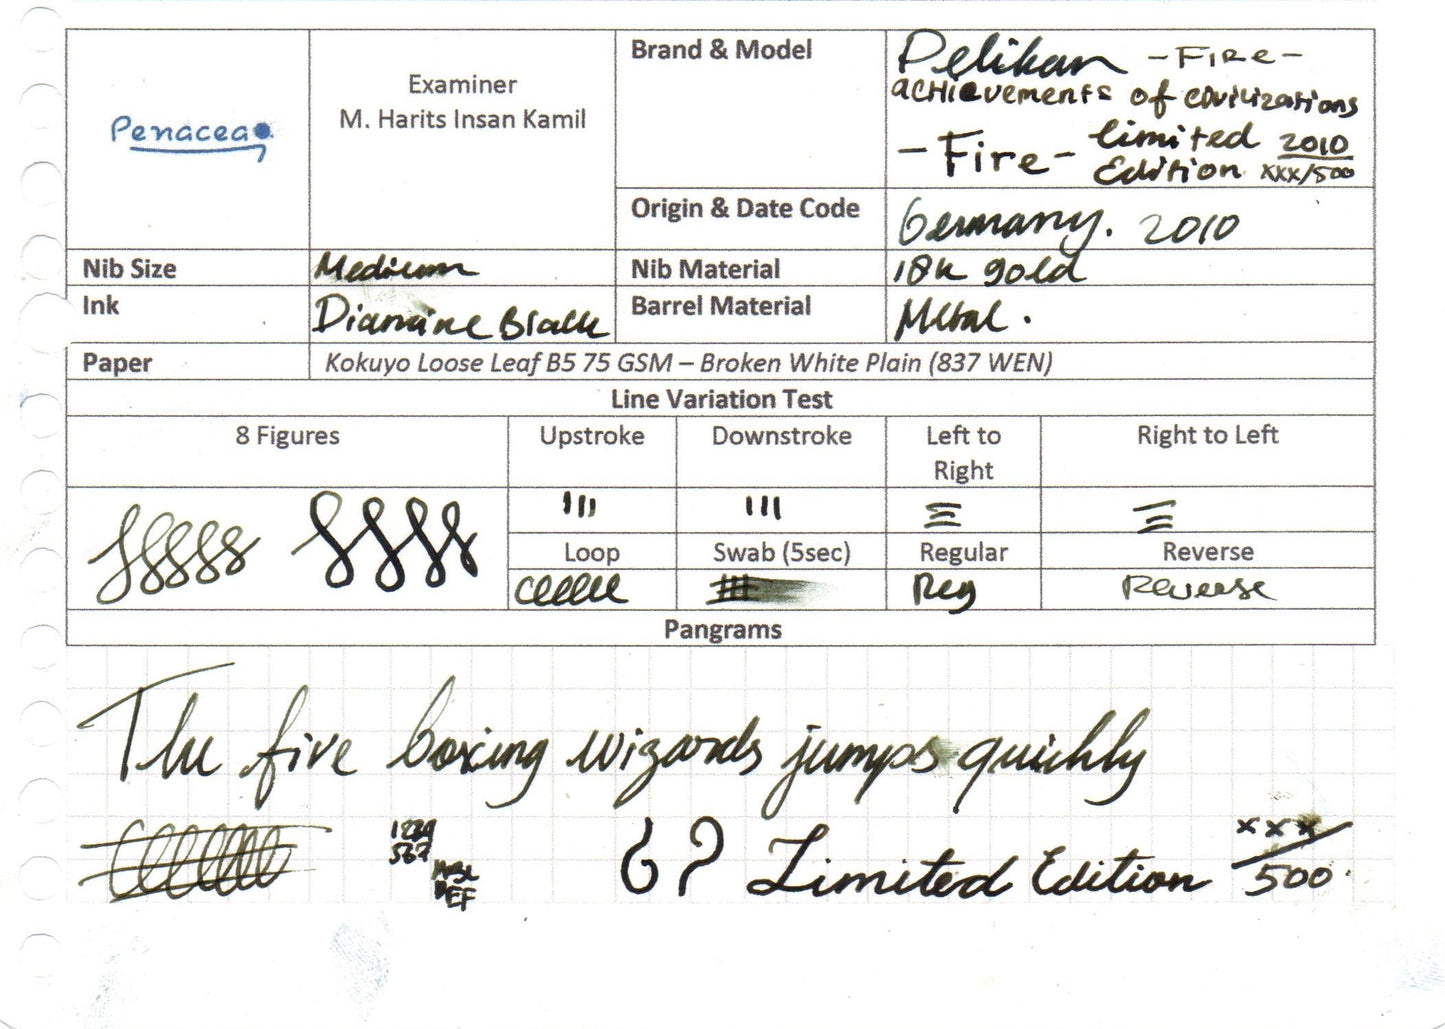 Penacea
Examiner
M. Harits Insan Kamil
Brand & Model
Pelikan - FIRE -
ACHIEVEMENTS of civilizations
- Fire - limited Edition 2010
xxx/500
Origin & Date Code
Germany. 2010
Nib Size
Medium
Nib Material
18k gold
Ink
Diamine Black
Barrel Material
Metal.
Paper
Kokuyo Loose Leaf B5 75 GSM – Broken White Plain (837 WEN)
Line Variation Test
8 Figures
Upstroke
Downstroke
Left to
Right
Right to Left
Loop
Swab (5sec)
Regular
Reverse
Reg
Reverse
Pangrams
The five boxing wizards jumps quickly
1234
567
ABC
DEF
¿ ?
Limited Edition
xxx/500.